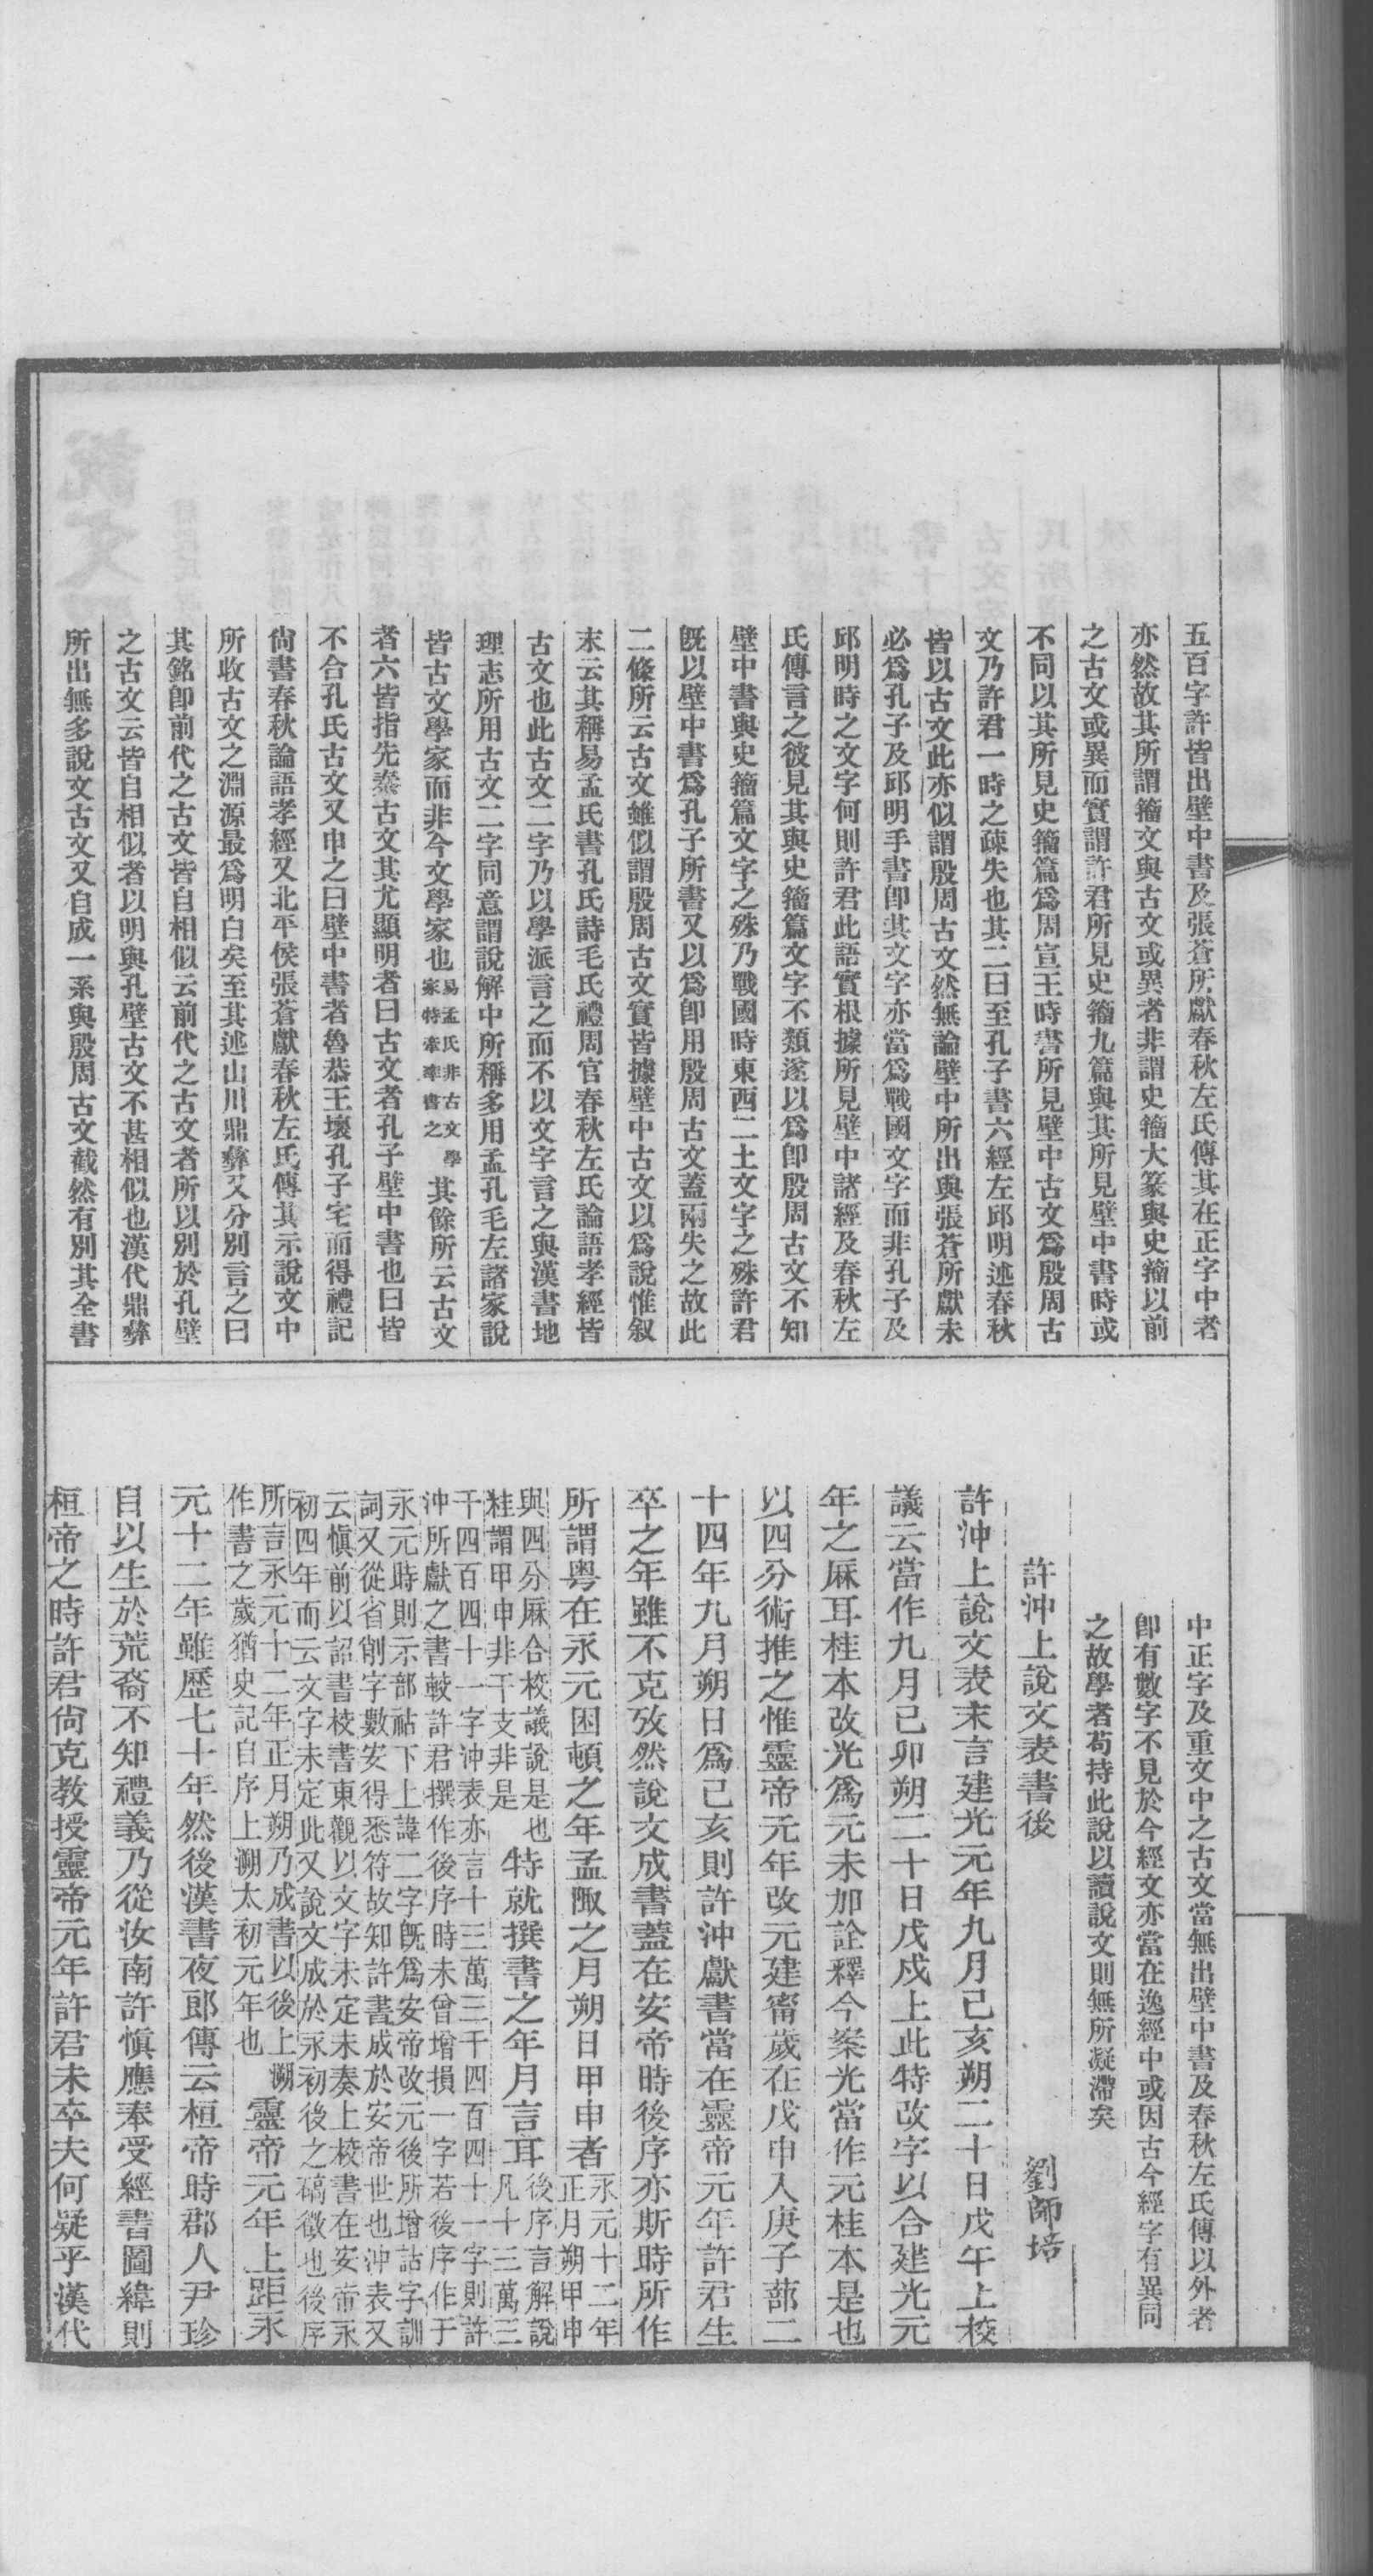 五百字許皆出壁中書及張蒼所獻春秋左氏傳其在正字中者
亦然故其所謂籀文與古文或異者非謂史籀大篆與史籀以前
之古文或異而實謂許君所見史籀九篇與其所見壁中書時或
不同以其所見史籀篇爲周宣王時書所見壁中古文爲殷周古
文乃許君一時之疎失也其二曰至孔子書六經左邱明述春秋
皆以古文此亦似謂殷周古文然無論壁中所出與張蒼所獻未
必爲孔子及邱明手書卽其文字亦當爲戰國文字而非孔子及
邱明時之文字何則許君此語實根據所見壁中諸經及春秋左
氏傳言之彼見其與史籀篇文字不類遂以爲卽殷周古文不知
壁中書與史籀篇文字之殊乃戰國時東西二土文字之殊許君
旣以壁中書爲孔子所書又以爲卽用殷周古文蓋兩失之故此
二條所云古文雖似謂殷周古文實皆據壁中古文以爲說惟叙
末云其稱易孟氏書孔氏詩毛氏禮周官春秋左氏論語孝經皆
古文也此古文二字乃以學派言之而不以文字言之與漢書地
理志所用古文二字同意謂說解中所稱多用孟孔毛左諸家說
皆古文學家而非今文學家也易孟氏非古文學家特牽率書之其餘所云古文
者六皆指先秦古文其尤顯明者曰古文者孔子壁中書也曰皆
不合孔氏古文又申之曰壁中書者魯恭王壞孔子宅而得禮記
尙書春秋論語孝經又北平侯張蒼獻春秋左氏傳其示說文中
所收古文之淵源最爲明白矣至其述山川鼎彝又分別言之曰
其銘卽前代之古文皆自相似云前代之古文者所以別於孔壁
之古文云皆自相似者以明與孔壁古文不甚相似也漢代鼎彝
所出無多說文古文又自成一系與殷周古文截然有別其全書
中正字及重文中之古文當無出壁中書及春秋左氏傳以外者
卽有數字不見於今經文亦當在逸經中或因古今經字有異同
之故學者苟持此說以讀說文則無所凝滯矣
許沖上說文表書後
劉師培
許沖上說文表末言建光元年九月己亥朔二十日戊午上校
議云當作九月己卯朔二十日戊戌上此特改字以合建光元
年之厤耳桂本改光爲元未加詮釋今案光當作元桂本是也
以四分術推之惟靈帝元年改元建甯歲在戊申入庚子蔀二
十四年九月朔日爲己亥則許沖獻書當在靈帝元年許君生
卒之年雖不克攷然說文成書蓋在安帝時後序亦斯時所作
所謂粵在永元困頓之年孟陬之月朔日甲申者永元十二年正月朔甲申
與四分厤合校議說是也桂謂甲申非干支非是特就撰書之年月言耳後序言解說凡十三萬三
千四百四十一字沖表亦言十三萬三千四百四十一字則許沖所獻之書較許君撰作後序時未曾增損一字若後序作于
永元時則示部祜下上諱二字旣爲安帝改元後所增詁字訓詞又從省削字數安得悉符故知許書成於安帝世也沖表又
云愼前以詔書校書東觀以文字未定未奏上校書在安帝永初四年而云文字未定此又說文成於永初後之碻徵也後序
所言永元十二年正月朔乃成書以後上溯作書之歲猶史記自序上溯太初元年也靈帝元年上距永
元十二年雖歷七十年然後漢書夜郎傳云桓帝時郡人尹珍
自以生於荒裔不知禮義乃從汝南許愼應奉受經書圖緯則
桓帝之時許君尙克教授靈帝元年許君未卒夫何疑乎漢代